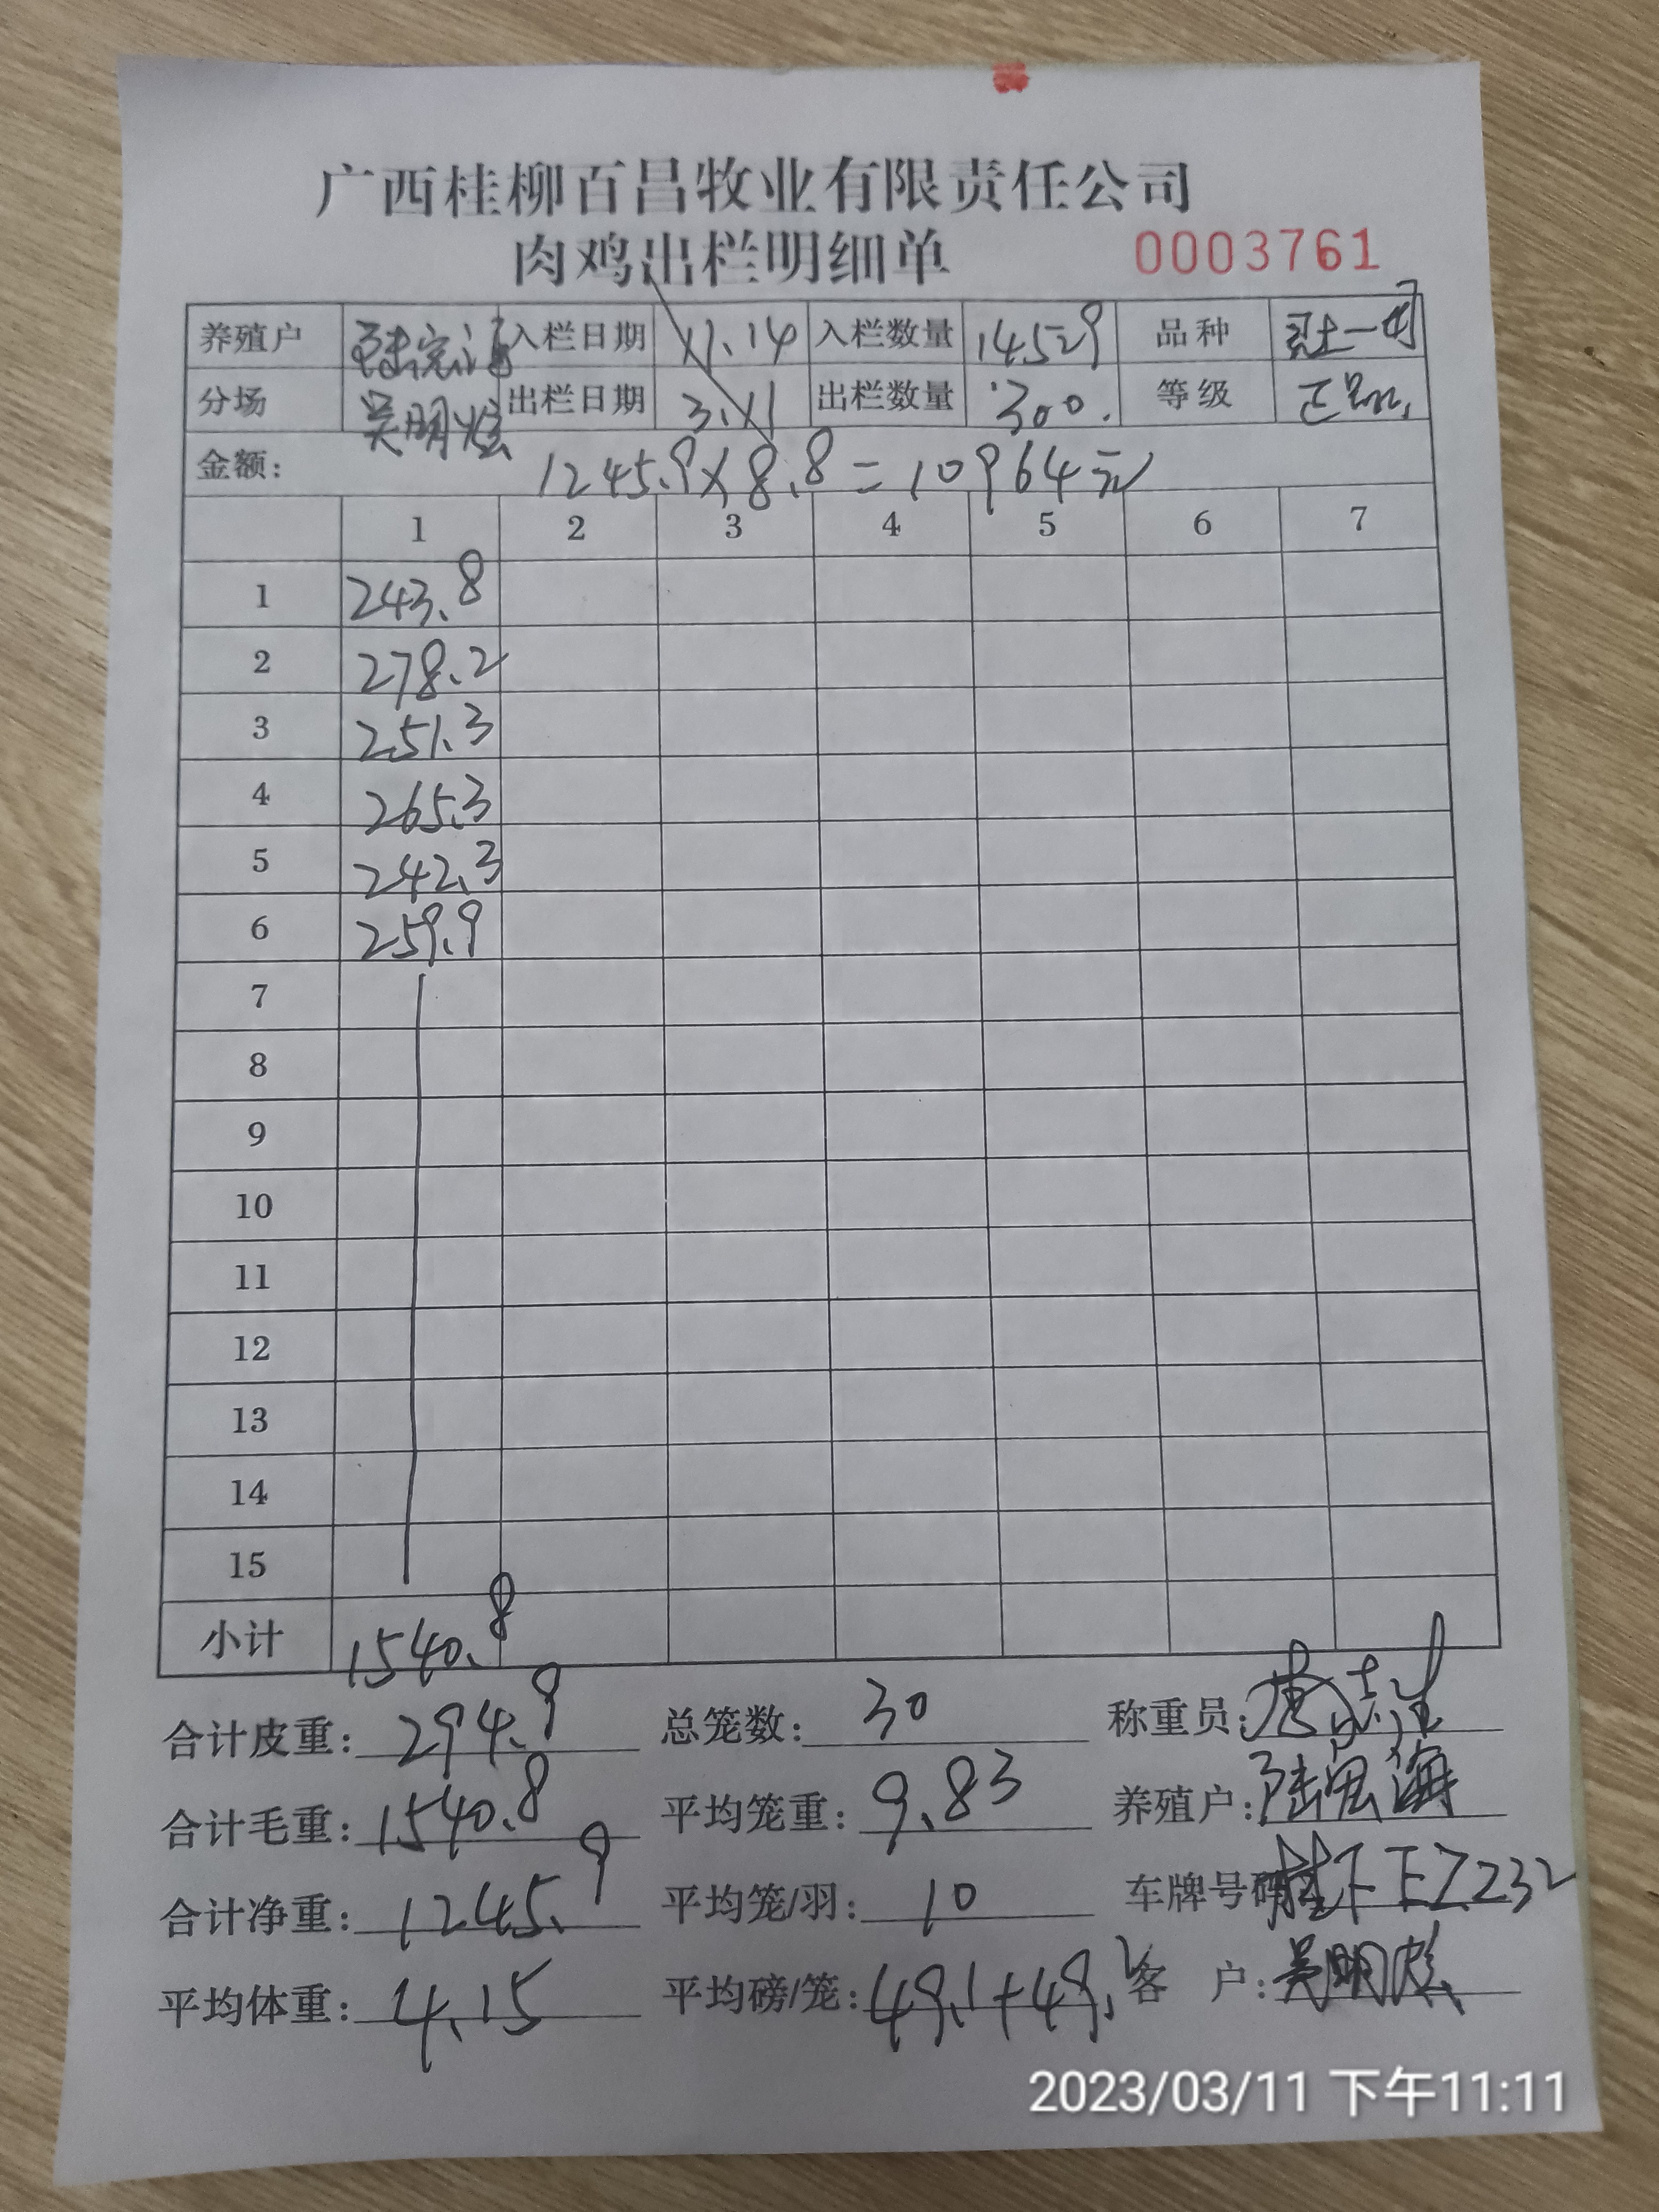 广西桂柳百昌牧业有限责任公司
肉鸡出栏明细单 0003761
养殖户 入栏日期 11.14 入栏数量 14529 品种 土一
分场 吴明 出栏日期 3.11 出栏数量 300. 等级 正品
金额: 1245.9×8.8=10964元
1 2 3 4 5 6 7
1 243.8
2 278.2
3 251.3
4 265.3
5 242.3
6 259.9
7
8
9
10
11
12
13
14
15
小计 1540.8
合计皮重: 294.9 总笼数: 30 称重员:
合计毛重: 1540.8 平均笼重: 9.83 养殖户: 陆宏海
合计净重: 1245.9 平均笼/羽: 10 车牌号码 桂F EZ232
平均体重: 4.15 平均磅/笼: 49.1+49.2 客 户: 吴明
2023/03/11 下午11:11